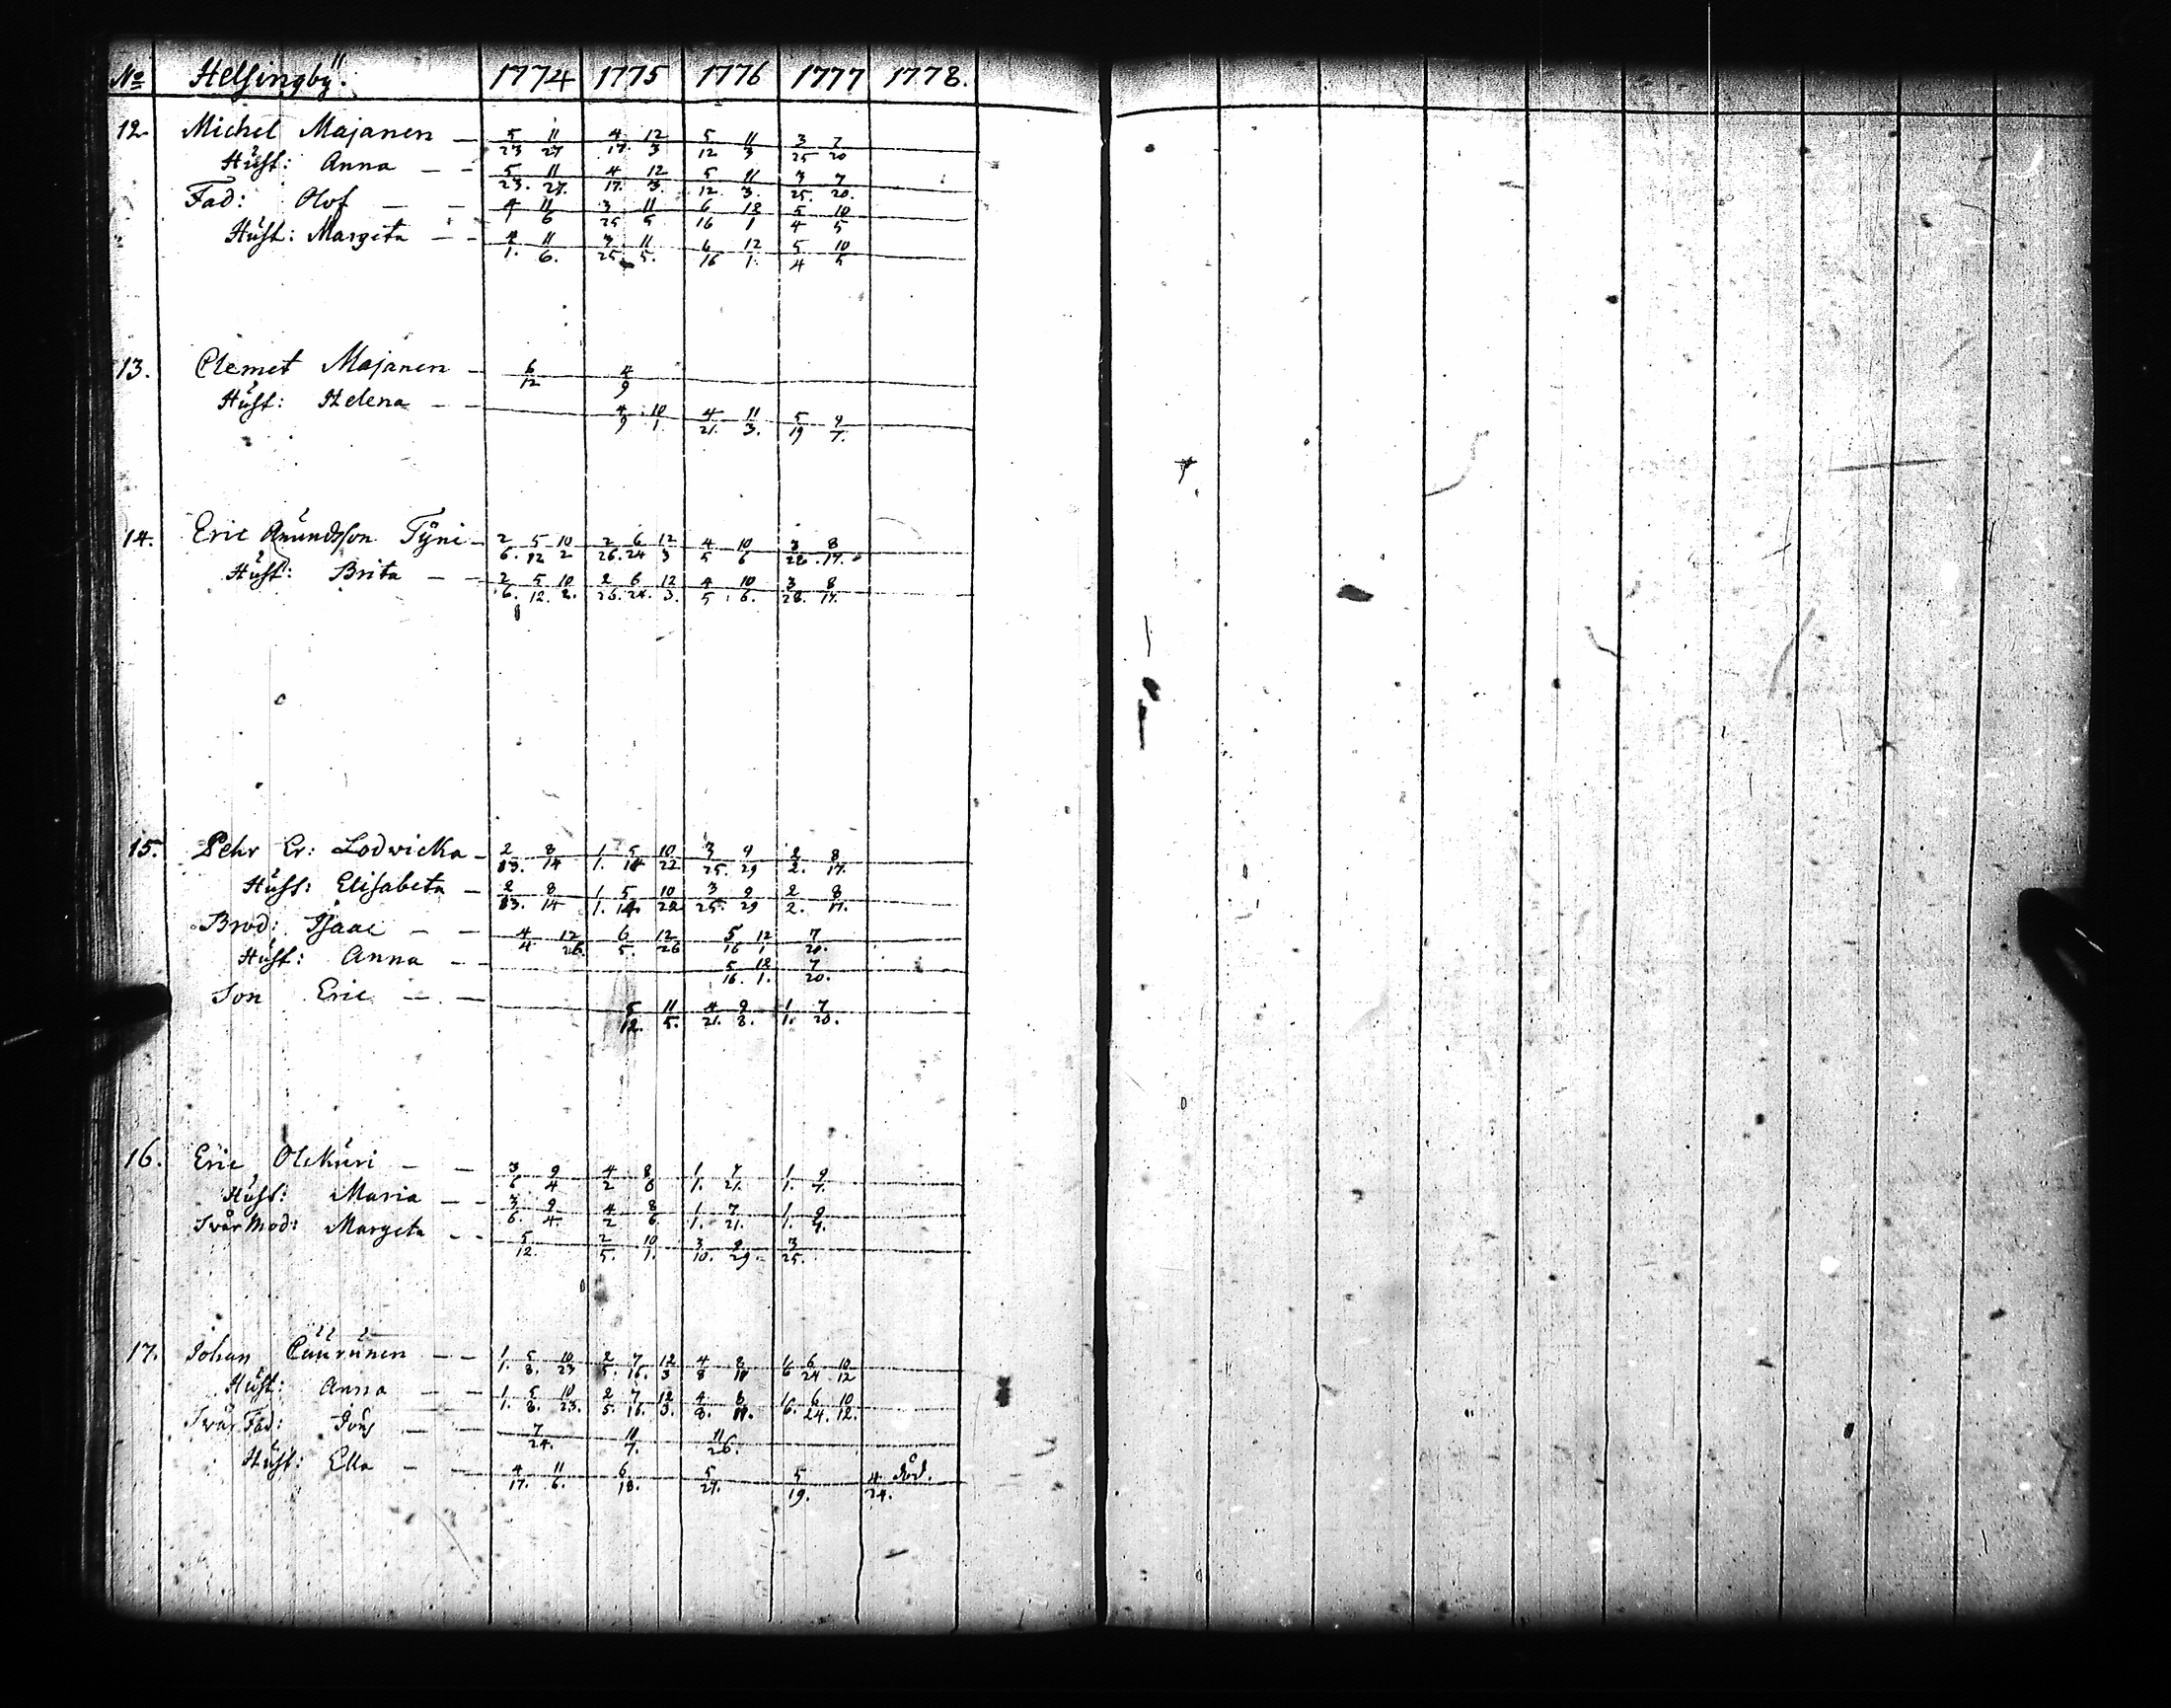 No Helsingbÿ. 1774 1775 1776 1777 1778.
12. Michel Majanen — 5/23 11/27 4/17 12/3 5/12 11/3 3/25 7/20
Hust: Anna — 5/23. 11/27. 4/17. 12/3. 5/12. 11/3. 3/25. 7/20.
Fad: Olof — 4/1 11/6 3/25 11/5 6/16 12/1 5/4 10/5
Hust: Margeta — 4/1. 11/6. 3/25. 11/5. 6/16 12/1. 5/4 10/5
13. Clemet Majanen — 6/12 4/9
Hust: Helena — 4/9 10/1 4/21. 11/3. 5/19 9/7.
14. Eric Amundsson Tÿni — 2/6. 5/12 10/2 2/26. 6/24 12/3 4/5 10/6 3/28. 8/17.
Hust: Brita — 2/6. 5/12. 10/2. 2/26. 6/24. 12/3. 4/5 10/6. 3/28. 8/17.
15. Pehr Er: Lodwicka — 2/13. 8/14 1/1. 5/14 10/22 3/25. 9/29 2/2. 8/17.
Hust: Elisabeta — 2/13. 8/14 1/1. 5/14. 10/22 3/25. 9/29 2/2. 8/17.
Brod: Isaac — 4/4. 12/26. 6/5. 12/26 5/16 12/1 7/20.
Hust: Anna — 5/16. 12/1. 7/20.
Son Eric — 5/12. 11/5. 4/21. 9/8. 1/1. 7/20.
16. Eric Olckuri — 3/6 9/4 4/2 8/6 1/1. 7/21. 1/1. 9/7.
Hust: Maria — 3/6. 9/4 4/2 8/6. 1/1. 7/21. 1/1. 9/7.
Svär Mod: Margeta — 5/12. 2/5. 10/1. 3/10. 9/29. 3/25.
17. Johan Cuurunen — 1/1. 5/8. 10/23 2/5. 7/16. 12/3 4/8 8/11 1/6 6/24 10/12
Hust: Anna — 1/1. 5/8. 10/23. 2/5. 7/16. 12/3. 4/8. 8/11. 1/6. 6/24. 10/12.
Svär Fad: Jöns — 7/24. 11/7. 11/26.
Hust: Ella — 4/17. 11/6. 6/18. 5/27. 5/19. 4/24. död.